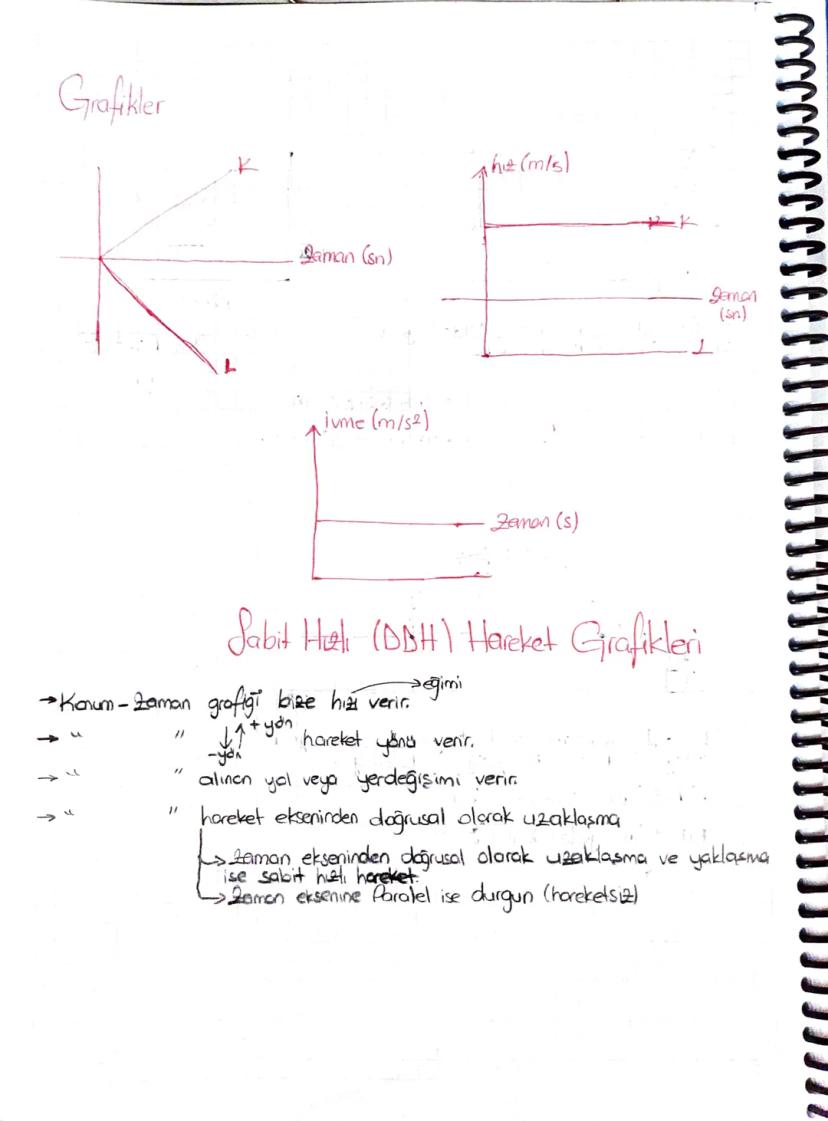 Grafikler
K
zaman (sn)
L
hız (m/s)
K
zaman
(sn)
L
ivme (m/s²)
zaman (s)
Sabit Hızlı (DDH) Hareket Grafikleri
→ Konum - Zaman grafiği bize hızı verir. → eğimi
→ " " ↓↑ + yön - yön hareket yönü verir.
→ " " alınan yol veya yerdeğişimi verir.
→ " " hareket ekseninden doğrusal olarak uzaklaşma
→ zaman ekseninden doğrusal olarak uzaklaşma ve yaklaşma
ise sabit hızlı hareket.
→ zaman eksenine Paralel ise durgun (hareketsiz)